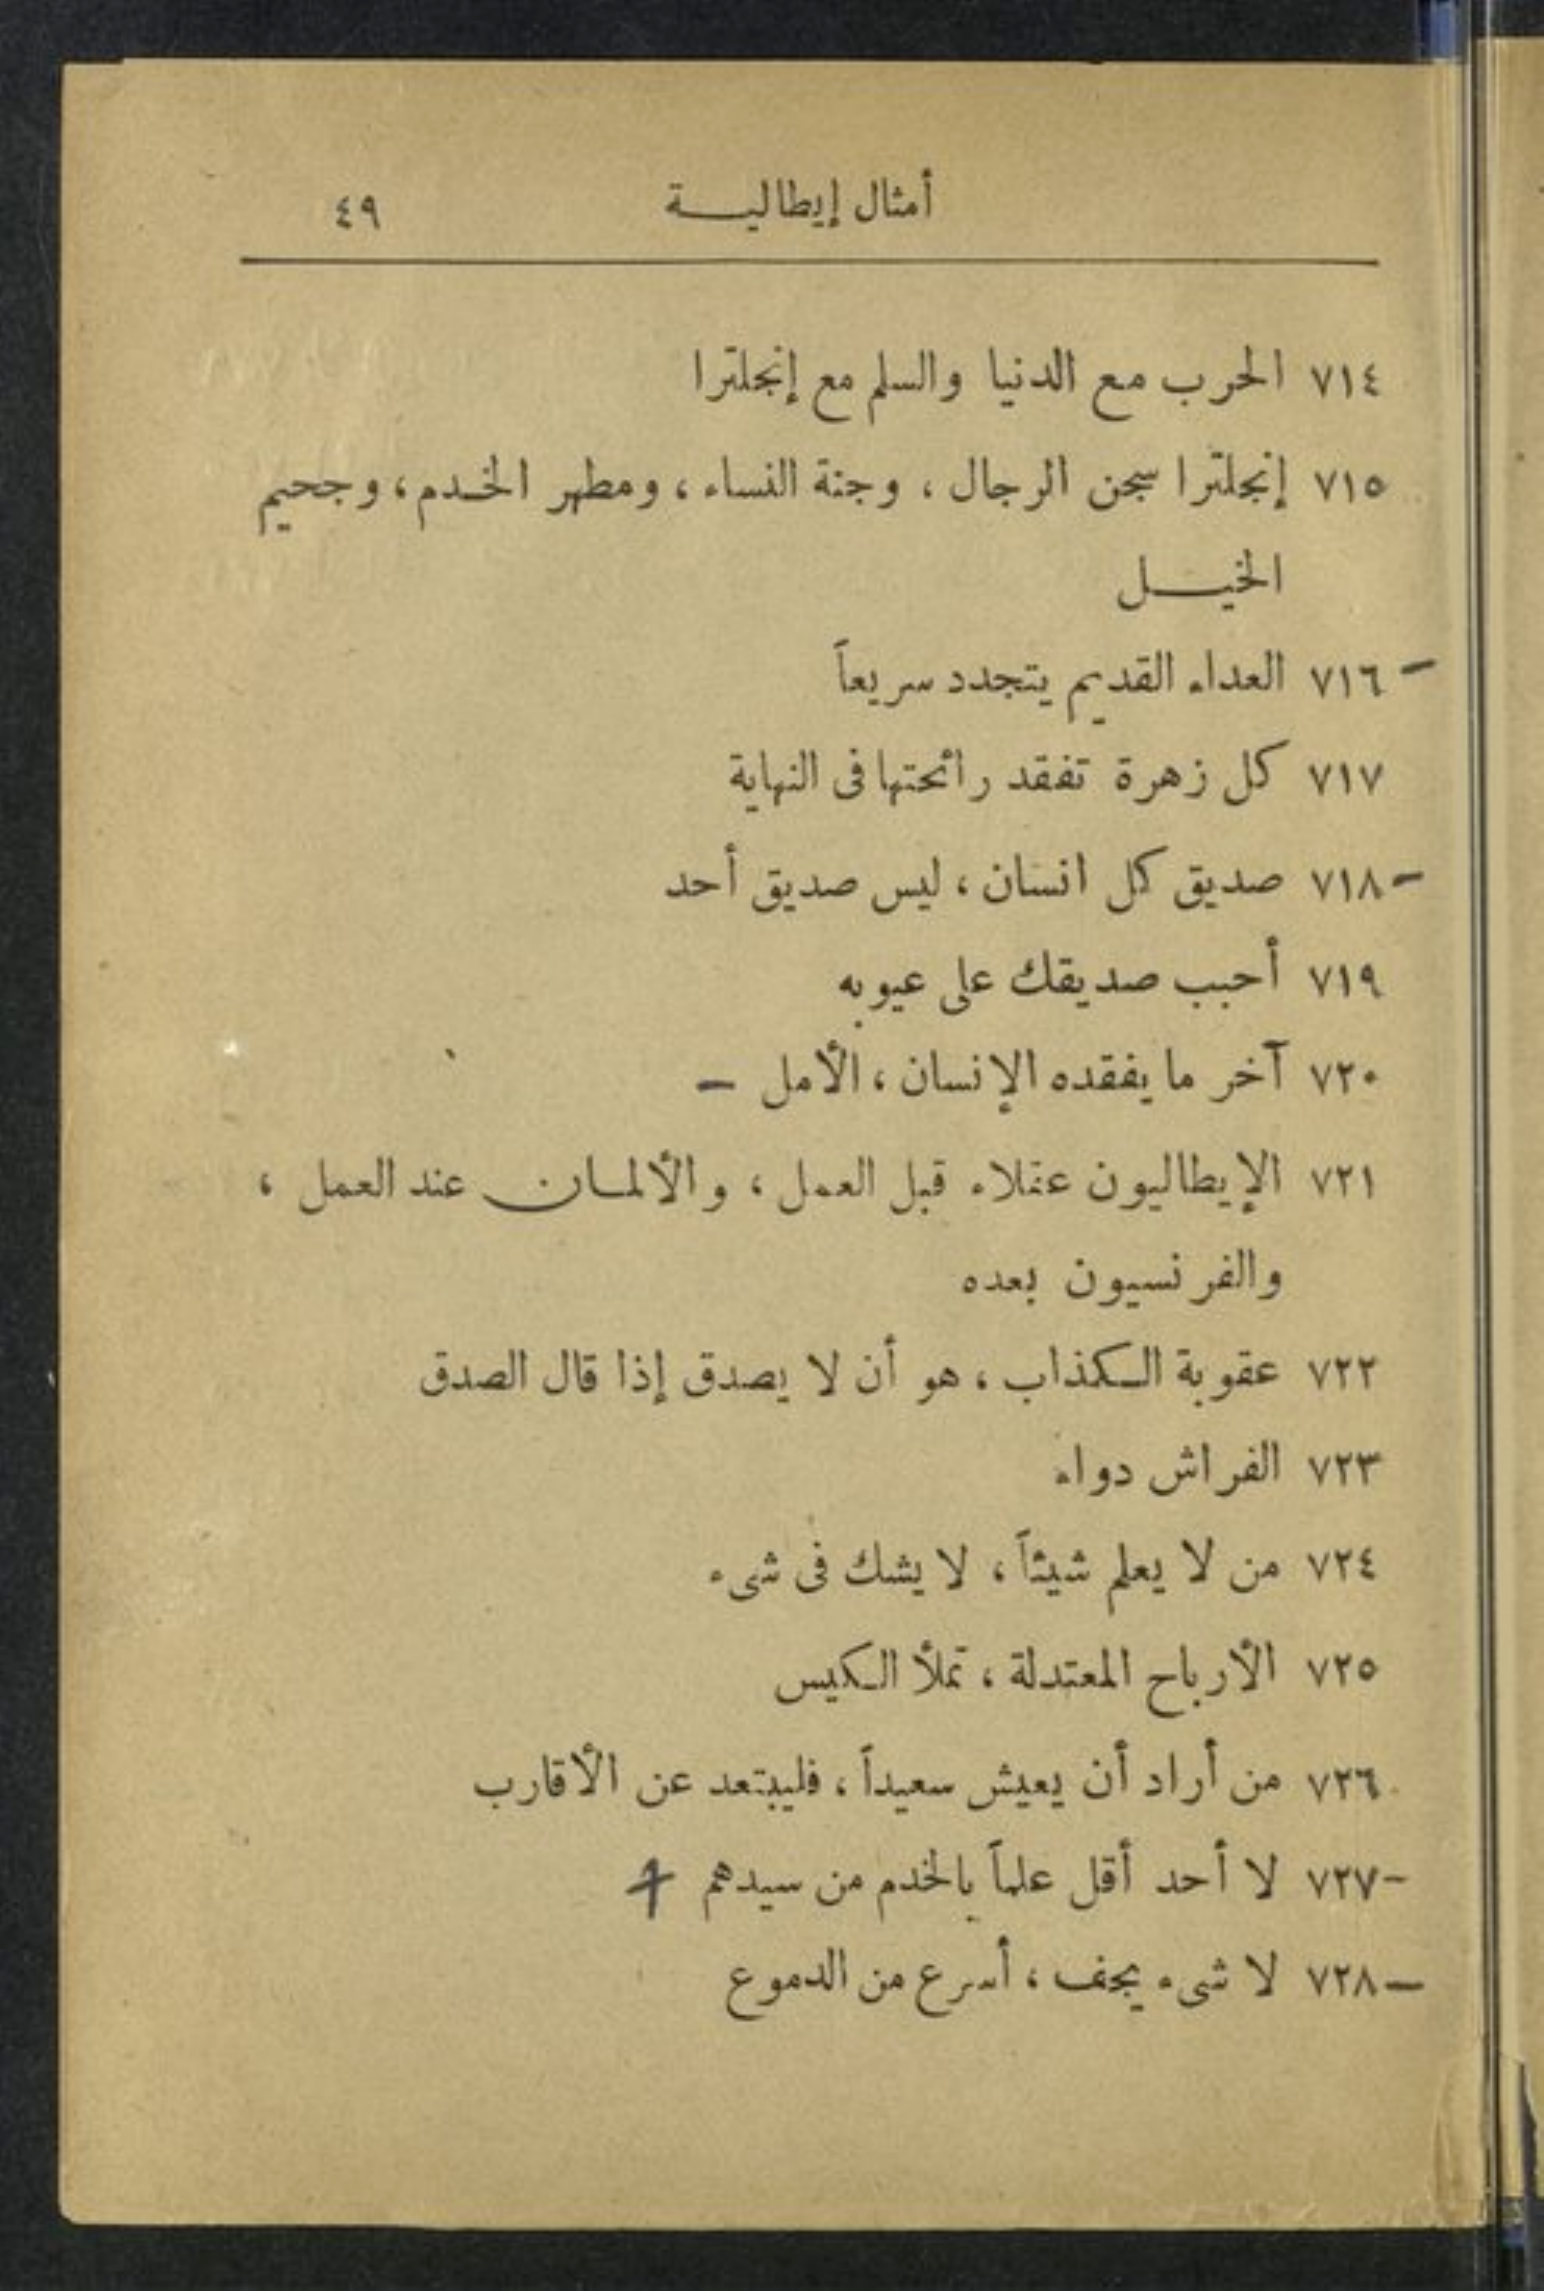 أمثال إيطاليـــة ٤٩
٧١٤ الحرب مع الدنيا والسلم مع إنجلترا
٧١٥ إنجلترا سجن الرجال ، وجنة النساء ، ومطهر الخـدم ، وجحيم
الخيـــل
٧١٦ العداء القديم يتجدد سريعاً
٧١٧ كل زهرة تفقد رائحتها فى النهاية
٧١٨ صديق كل انسان ، ليس صديق أحد
٧١٩ أحبب صديقك على عيوبه
٧٢٠ آخر ما يفقده الإنسان ، الأمل
٧٢١ الإيطاليون عقلاء قبل العمل ، والألمـان عند العمل ،
والفرنسيون بعده
٧٢٢ عقوبة الـكذاب ، هو أن لا يصدق إذا قال الصدق
٧٢٣ الفراش دواء
٧٢٤ من لا يعلم شيئاً ، لا يشك فى شىء
٧٢٥ الأرباح المعتدلة ، تملأ الـكيس
٧٢٦ من أراد أن يعيش سعيداً ، فليبتعد عن الأقارب
٧٢٧ لا أحد أقل علماً بالخدم من سيدهم
٧٢٨ لا شىء يجف ، أسرع من الدموع